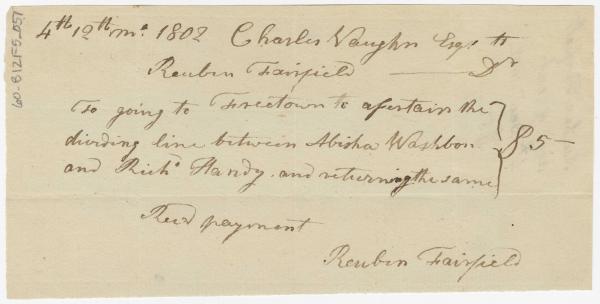 4th 12th mo. 1802 Charles Vaughn Esqr to
Reuben Fairfield —— Dr
To going to Freetown to asertain the
dividing line between Abisha Washbon
and Richd Handy and returning the same
$5—
Recd payment
Reuben Fairfield
60-B12F5-057